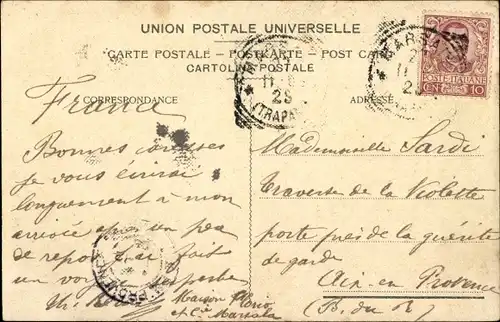 UNION POSTALE UNIVERSELLE
CARTE POSTALE — POSTKARTE — POST CARD
CARTOLINA POSTALE
CORRESPONDANCE
ADRESSE
POSTE ITALIANE
CEN 10
11
29
(TRAPANI)
France
Bonnes caresses
je vous écrirai
longuement à mon
arrivée après un peu
de repos j'ai fait
un voyage
Maison Florio
et Cie Marsala
Mademoiselle Sardi
Traverse de la Violette
porte près de la guérite
de garde
Aix en Provence
(B. du R)